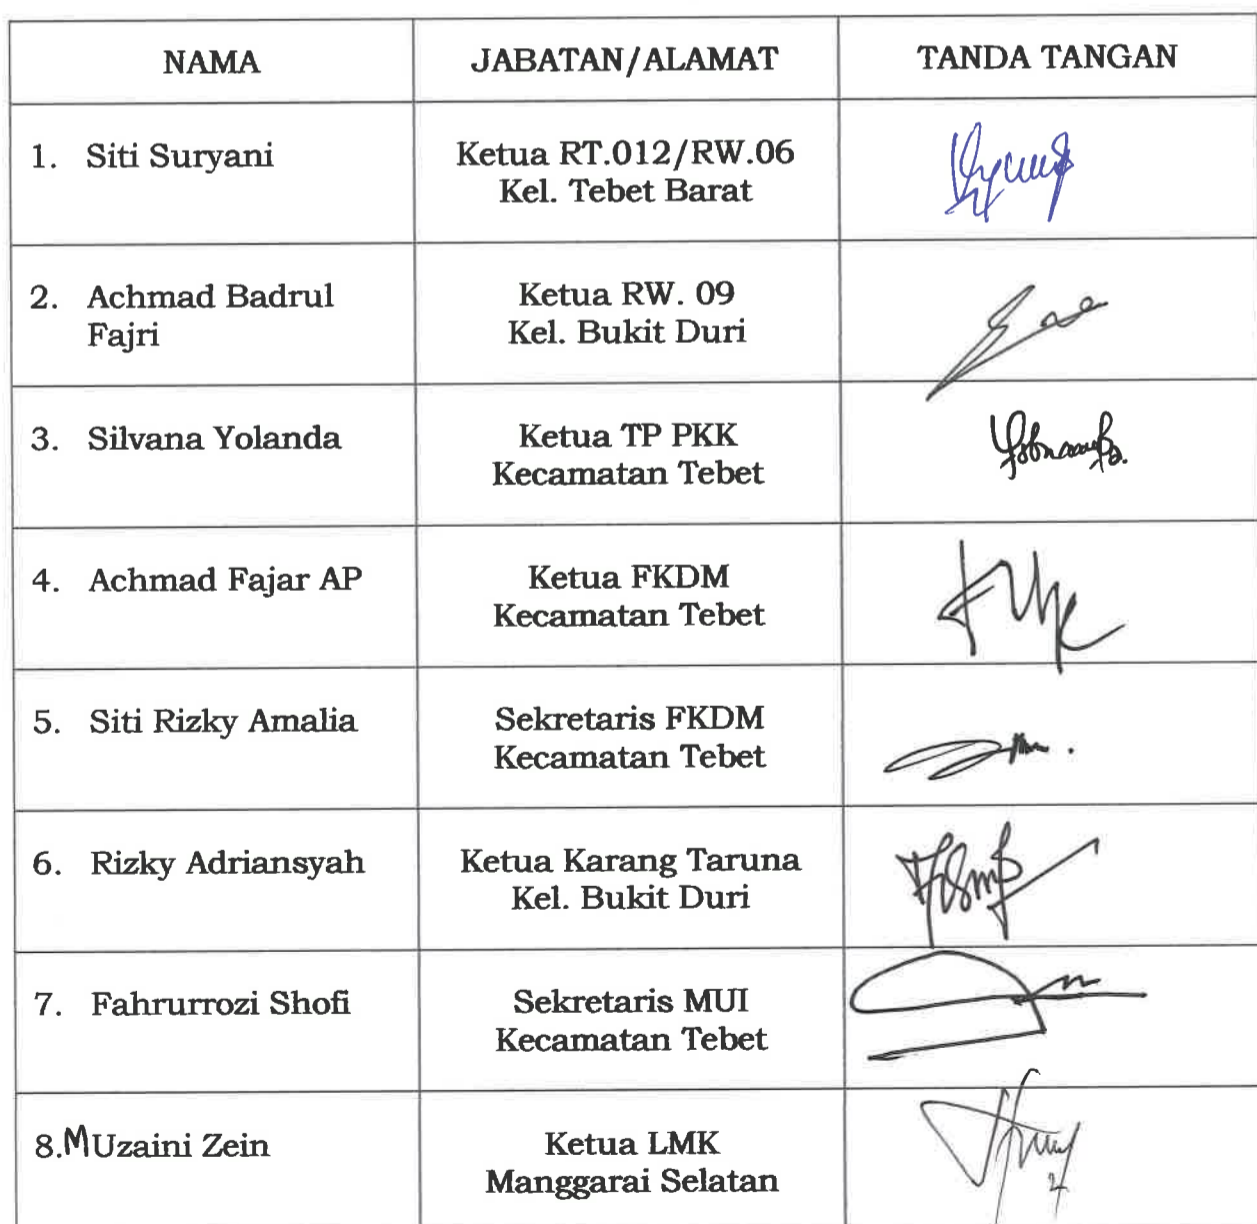 NAMA JABATAN/ALAMAT TANDA TANGAN
1. Siti Suryani Ketua RT.012/RW.06
Kel. Tebet Barat
2. Achmad Badrul Ketua RW. 09
Fajri Kel. Bukit Duri
3. Silvana Yolanda Ketua TP PKK
Kecamatan Tebet
4. Achmad Fajar AP Ketua FKDM
Kecamatan Tebet
5. Siti Rizky Amalia Sekretaris FKDM
Kecamatan Tebet
6. Rizky Adriansyah Ketua Karang Taruna
Kel. Bukit Duri
7. Fahrurrozi Shofi Sekretaris MUI
Kecamatan Tebet
8.MUzaini Zein Ketua LMK
Manggarai Selatan